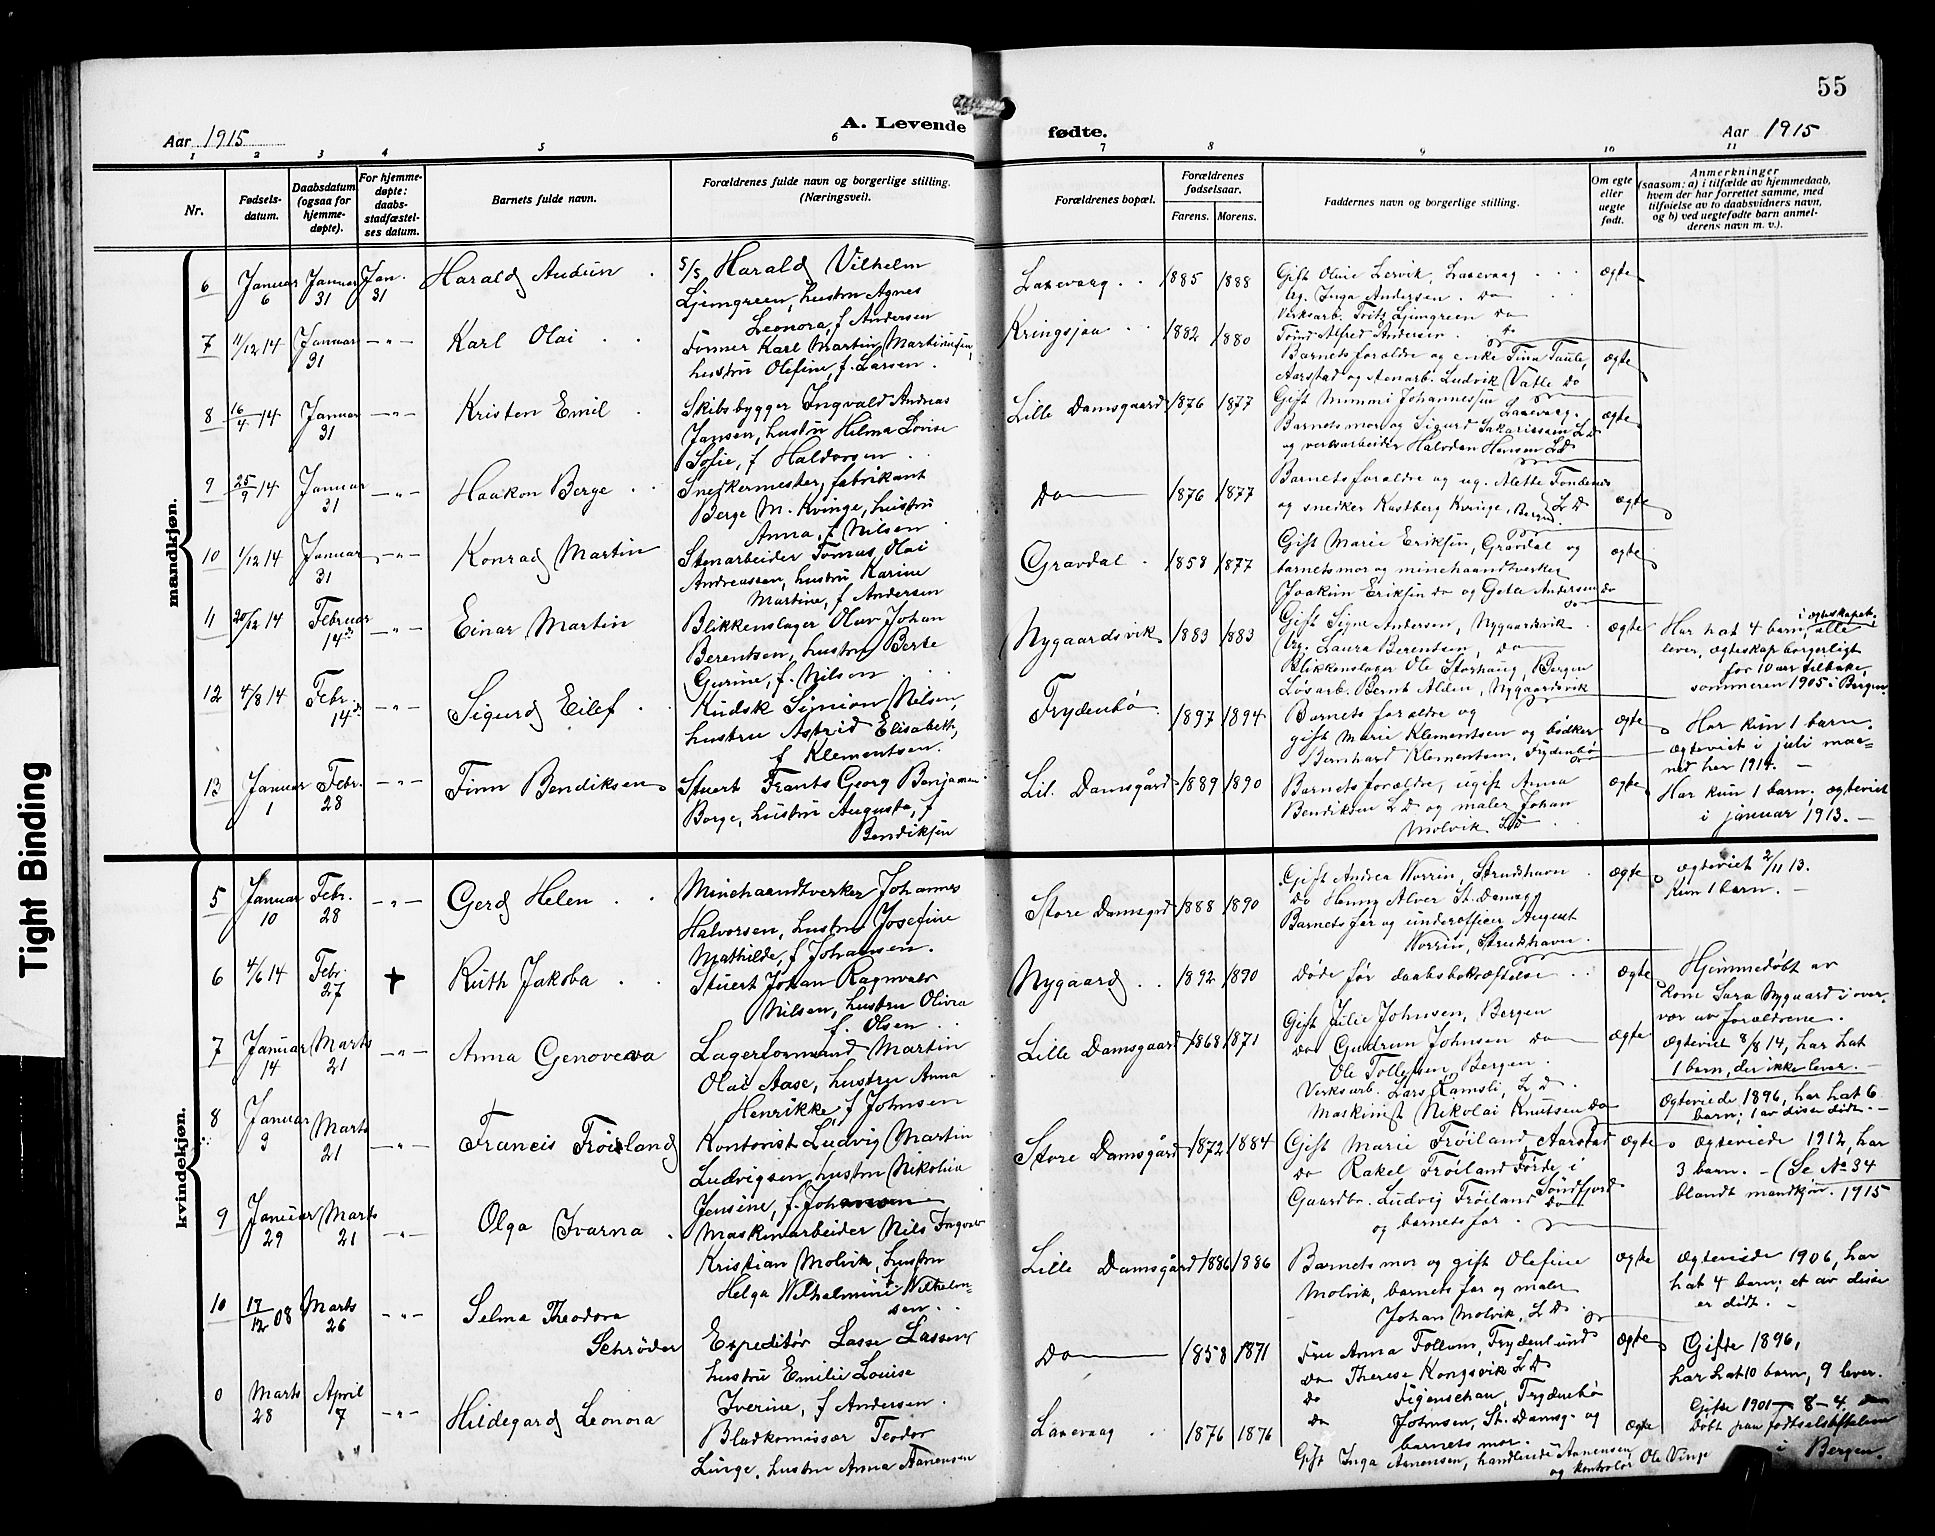 55
A. Levende fødte.
Aar 1915
Aar 1915
1 2 3 4 5 6 7 8 9 10 11
Nr.
Fødselsdatum.
Daabsdatum (ogsaa for hjemmedøpte).
For hjemmedøpte: daabsstadfæstelses datum.
Barnets fulde navn.
Forældrenes fulde navn og borgerlige stilling. (Næringsvei).
Forældrenes bopæl.
Forældrenes fødselsaar.
Farens. Morens.
Faddernes navn og borgerlige stilling.
Om egte eller uegte født.
Anmerkninger
(saasom: a) i tilfælde av hjemmedaab, hvem der har forrettet samme, med tilføielse av to daabsvidners navn, og b) ved uegtefødte barn anmelderens navn m. v.).
mandkjøn.
6 Januar 6 Januar 31 Jan. 31 Harald Audun
S/S Harald Vilhelm
Ljungreen, hustru Agnes
Leonora, f Andersen
Laxevaag 1885 1888
Gift Oline Lervik, Laxevaag
Ug. Inga Andersen. Do
Verksarb. Fritz Ljungreen Do
Tømd Alfred Andersen Do
Ægte
7 11/12 14 Januar 31 Karl Olai
Former Karl Martin Martinusen,
hustru Olefine, f. Larsen.
Kringsjaa 1882 1880
Barnets forældre og enke Tina Taule,
Aarstad og Stenarb. Ludvik Vatle Do
Ægte
8 16/4 14 Januar 31 Kristen Emil
Skibsbygger Ingvald Andreas
Jansen, hustru Helma Lovise
Sofie, f Haldorsen
Lille Damsgaard 1876 1877
Gift Mimmi Johannessen Laxevaag.
Barnets mor og Sigurd Sakariassen L D
og verksarbeider Halvdan Hansen L D
Ægte
9 25/9 14 Januar 31 Haakon Berge
Snedkermester, fabrikant
Berge M. Kvinge, hustru
Anna, f Nilsen
Do 1876 1877
Barnets forældre og ug. Alette Fondenes
og snedker Kastberg Kvinge, Bergen L D
Ægte
10 1/12 14 Januar 31 Konrad Martin
Stenarbeider Tomas Olai
Andreassen, hustru Karine
Martine, f Andersen
Gravdal 1858 1877
Gift Marie Eriksen, Gravdal og
barnets mor og minehaandtverker
Joakim Eriksen Do og Andersen Do
Ægte
11 20/12 14 Februar 14de Einar Martin
Blikkenslager Olav Johan
Berentsen, hustru Berte
Gurine, f. Nilsen
Nygaardsvik 1883 1883
Gift Signe Andersen, Nygaardsvik
Ug. Laura Berentsen, Do
Blikkenslager Ole Storhaug, Bergen
Løsarb. Bernt Alden, Nygaardsvik
Ægte
Har hat 4 barn i ægteskapet, alle
lever, ægteskap borgerligt
for 10 aar tilbake,
sommeren 1905 i Bergen
12 4/8 14 Febr. 14de Sigurd Eilef
Kudsk Simion Nilsen,
hustru Astrid Elisabeth,
f Klementsen.
Frydenbö 1897 1894
Barnets forældre og
gift Marie Klementsen og bödker
Bernhard Klementsen, Frydenbö
Ægte
Har kun 1 barn.
Ægteviet i juli maaned
her 1914. —
13 Januar 1 Febr. 28 Finn Bendiksen
Stuert Frants Georg Benjamin
Borge, hustru Augusta, f
Bendiksen
Lil. Damsgård 1889 1890
Barnets forældre, ugift Anna
Bendiksen L D og maler Johan
Molvik L D
Ægte
Har kun 1 barn; ægteviet
i januar 1913. —
kvindekjøn.
5 Januar 10 Febr. 28 Gerd Helen
Minehaandtverker Johannes
Halvorsen, hustru Josefine
Mathilde, f Johansen.
Store Damsgrd 1888 1890
Gift Andrea Worrin, Strudshavn
Do Henny Alver St. Damsg
Barnets far og underofficer August
Worrin, Strudshavn.
Ægte
Ægteviet 2/11 13.
Kun 1 barn. —
6 4/6 14 Febr. 27 + Ruth Jakoba
Stuert Johan Ragnvald
Nilsen, hustru Olivia
f. Olsen
Nygaard 1892 1890
Døde før daabsbekræftelse
Ægte
Hjemmedöbt av
Kone Sara Nygaard i overvær
av forældrene.
Ægteviet 8/8 14, har hat
1 barn, der ikke lever. —
7 Januar 14 Marts 21 Anna Genoveva
Lagerformand Martin
Olai Aase, hustru Anna
Henrikke, f Johnsen
Lille Damsgaard 1868 1871
Gift Julie Johnsen, Bergen
Do Gudrun Johnsen Do
Ole Tollefsen, Bergen.
Verksarb. Lars Ramsli, L D.
Maskinist Nikolai Knutsen Do
Ægte
Ægteviede 1896, har hat 6
barn; 1 av disse dödt. —
8 Januar 3 Marts 21 Francis Tröiland
Kontorist Ludvig Martin
Ludvigsen, hustru Nikolia
Jensine, f. Johansen
Store Damsgård 1872 1884
Gift Marie Tröiland, Aarstad
Do Rakel Tröiland Förde i
Gaardbr. Ludvig Tröiland Söndfjord
og barnets far.
Ægte
Ægteviede 1912, har
3 barn. — (Se No 34
blandt mandkjön. 1915
9 Januar 29 Marts 21 Olga Ivarna
Maskinarbeider Nils Ingvar
Kristian Molvik, hustru
Helga Wilhelmine f. Wilhelmsen.
Lille Damsgård 1886 1886
Barnets mor og gift Olefine
Molvik, barnets far og maler
Johan Molvik, L D
Ægte
Ægteviede 1906, har
hat 4 barn; et av disse
er dödt. —
10 17/12 08 Marts 26 Selma Theodora
Schrøder
Expeditör Lasse Lassen,
hustru Emilie Louise
Iverine, f Andersen.
Do 1858 1871
Fru Anna Follum, Frydenlund
Do Therese Kongsvik L D
Do Figenschau, Frydenbö
Do Johnsen, St. Damsg. og
barnets mor.
Ægte
Gifte 1896,
har hat 10 barn, 9 lever.
0 Marts 28 April 7 Hildegard Leonora
Bladkomissær Teodor
Linge, hustru Anna Aanensen
Laxevaag 1876 1876
Gift Inga Aanensen, handlende Aanensen
og kontrolör Ole Vinje
Ægte
Gifte 1901 — 8 — 4.
Døbt paa fødselsstiftelsen
i Bergen.
Tight Binding